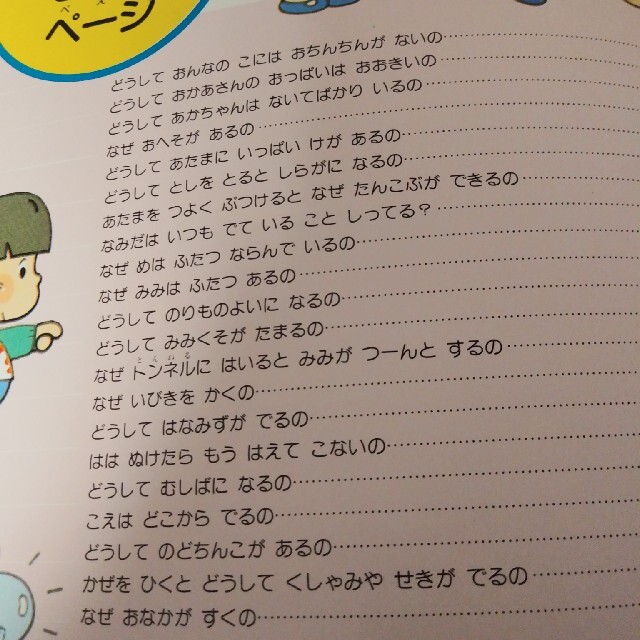 ページ
どうして おんなの こには おちんちんが ないの
どうして おかあさんの おっぱいは おおきいの
どうして あかちゃんは ないてばかり いるの
なぜ おへそが あるの
どうして あたまに いっぱい けが あるの
どうして としを とると しらがに なるの
あたまを つよく ぶつけると なぜ たんこぶが できるの
なみだは いつも でて いる こと しってる？
なぜ めは ふたつ ならんで いるの
なぜ みみは ふたつ あるの
どうして のりものよいに なるの
どうして みみくそが たまるの
なぜ トンネルに はいると みみが つーんと するの
なぜ いびきを かくの
どうして はなみずが でるの
はは ぬけたら もう はえて こないの
どうして むしばに なるの
こえは どこから でるの
どうして のどちんこが あるの
かぜを ひくと どうして くしゃみや せきが でるの
なぜ おなかが すくの